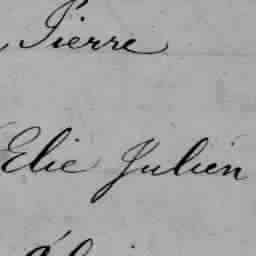 Pierre
Elie Julien